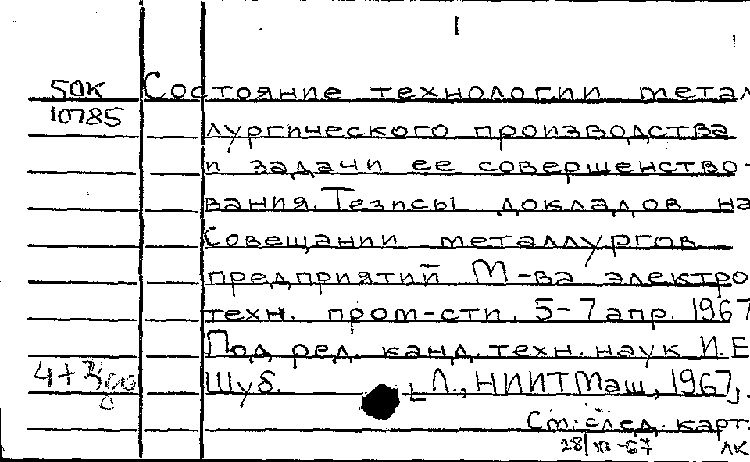 I
50К Состояние технологии метал
10785 лургического производства
и задачи ее совершенство-
вания. Тезисы докладов на
Совещании металлургов
предприятий М-ва электро
техн. пром-сти, 5-7 апр. 1967
Под ред. канд. техн. наук И.Е
Шуб. Л., НИИТМаш, 1967,
См. след. карт.
28/XII-67 ЛК